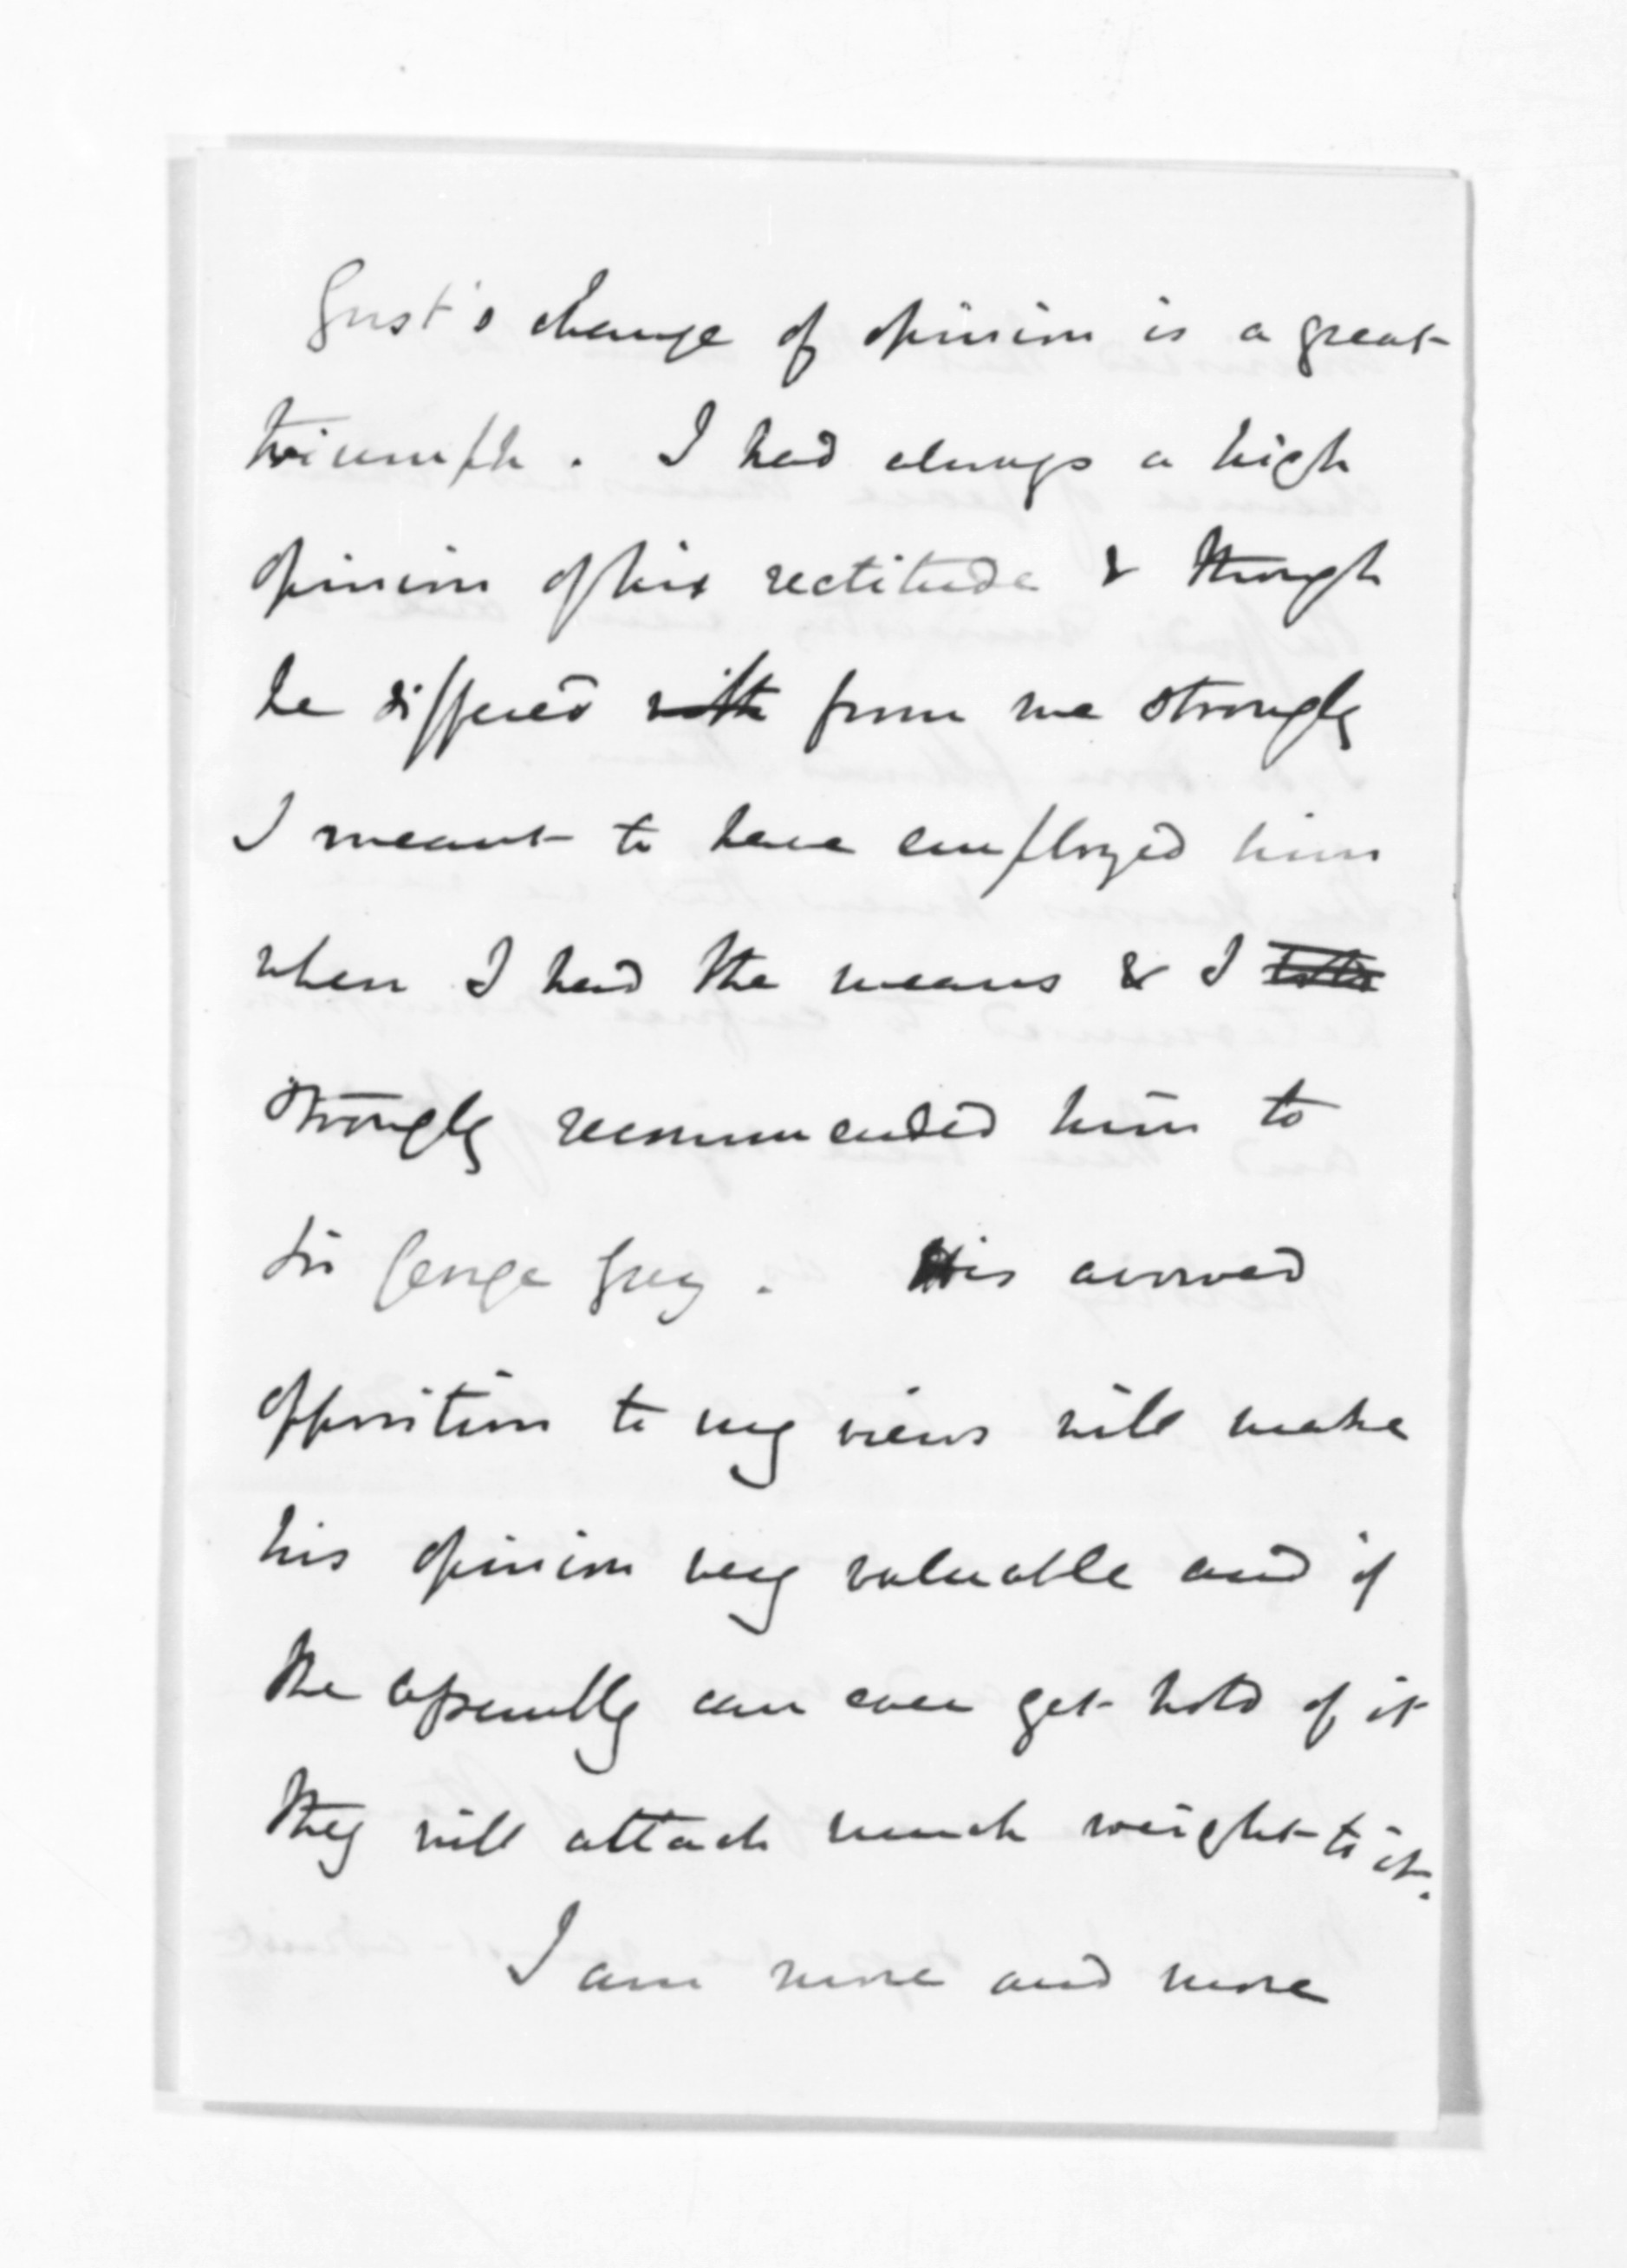 Gorst's change of opinion is a great
triumph. I had always a high
opinion of his rectitude & though
he differed with from me strongly
I meant to have employed him
when I had the means & I
strongly recommended him to
Sir George Grey. His avowed
opposition to my views will make
his opinion very valuable and if
the assembly can ever get hold of it
they will attach much weight to it.
I am more and more